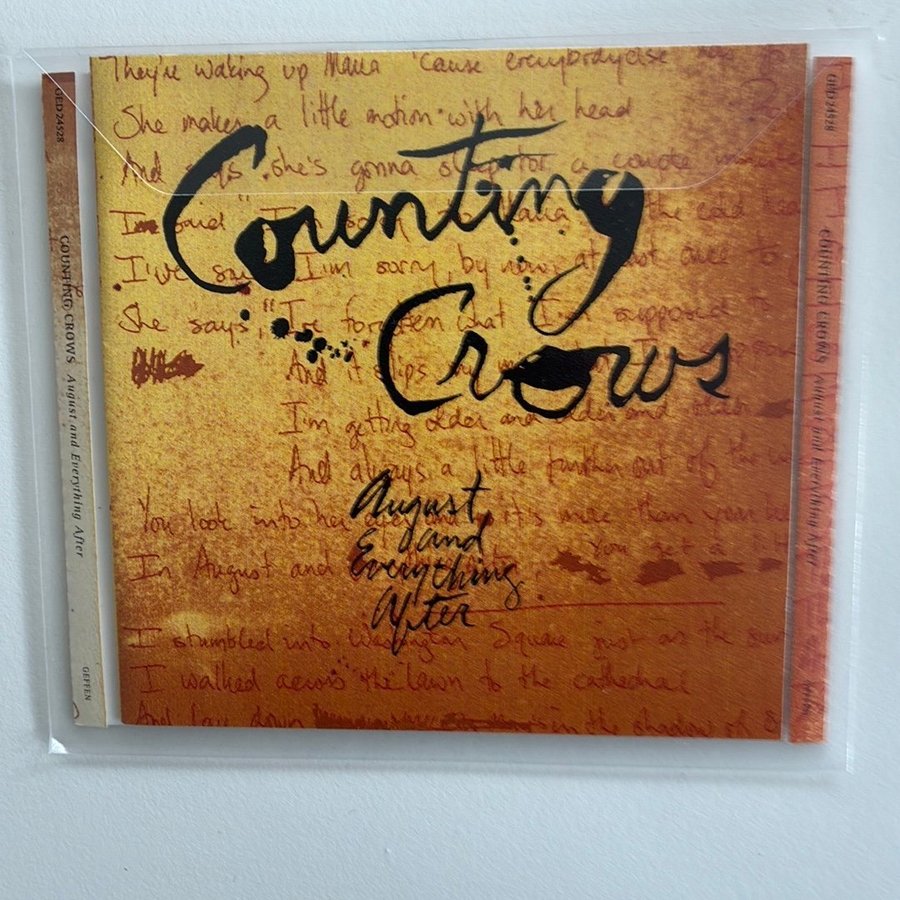 GED 24528
COUNTING CROWS August and Everything After
GEFFEN
They're waking up Maria 'cause everybodyelse
She makes a little motion with her head
And says she's gonna sleep for a couple minutes
I'm said "I'm sorry" to Maria the cold
I've I'm sorry, by now, at least once to
She says, "I've forgotten what I'm supposed to
And it slips my
I'm getting older and older and older
And always a little further out of the
You look into her eyes and it's more than your
In August and You get a
I stumbled into Washington Square just as the sun
I walked across the lawn to the cathedral
And lay down in the shadow of S
Counting
Crows
August
and
Everything
After
GED 24528
COUNTING CROWS August and Everything After